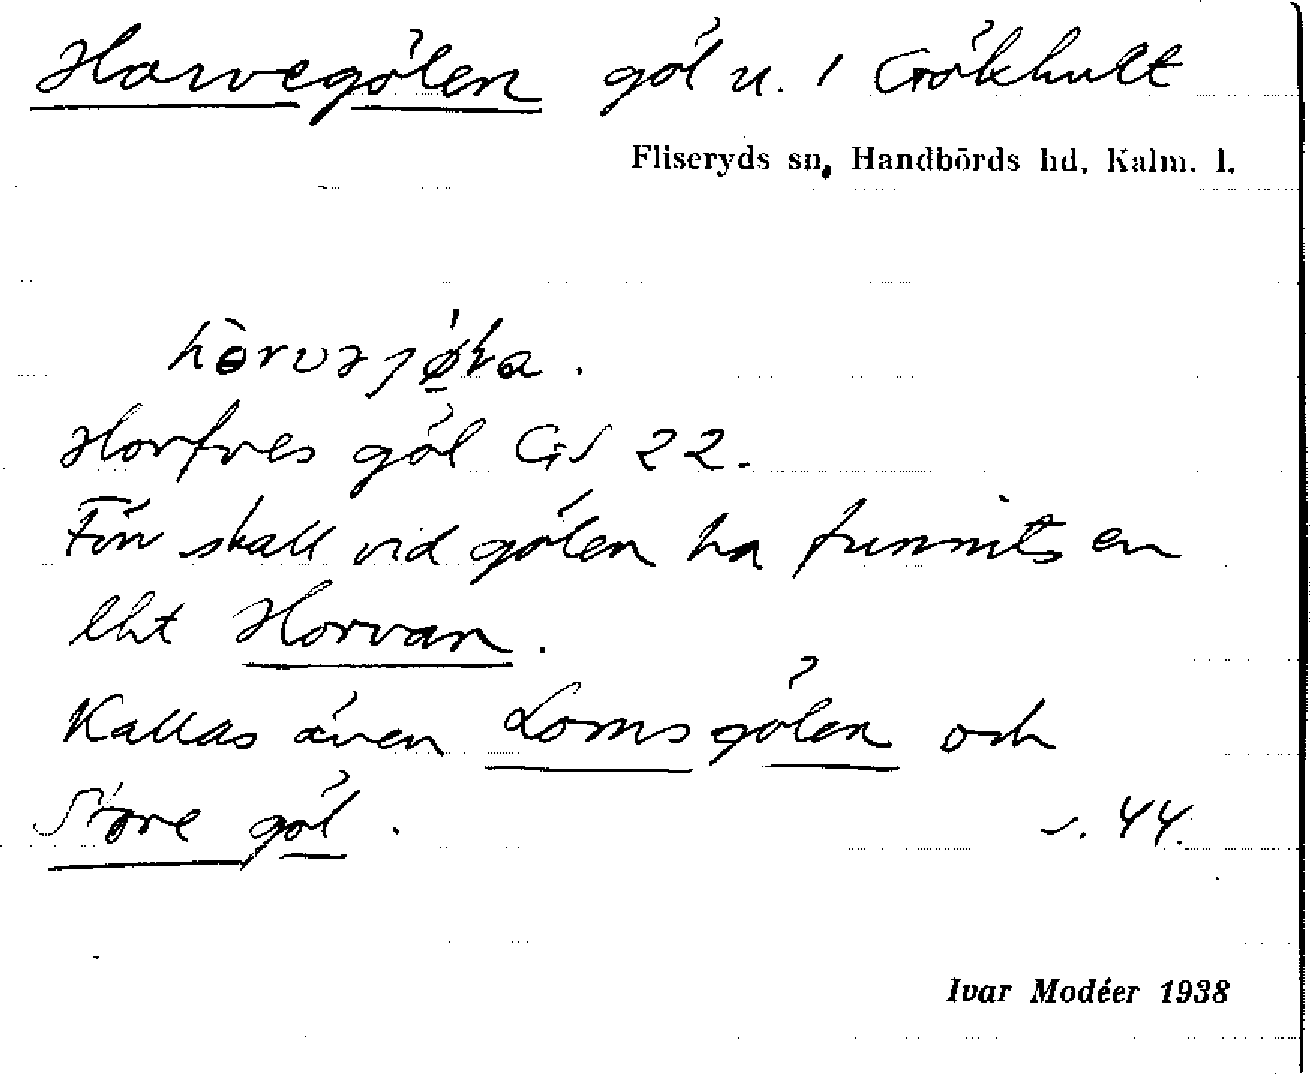 Horvegölen göl u. 1 Gökhult
Fliseryds sn, Handbörds hd, Kalm. l.
Horfves göl GS 22.
Förr skall vid gölen ha funnits en
lht Horvan.
Kallas även Lomsgölen och
Store göl. s. 44.
Ivar Modéer 1938